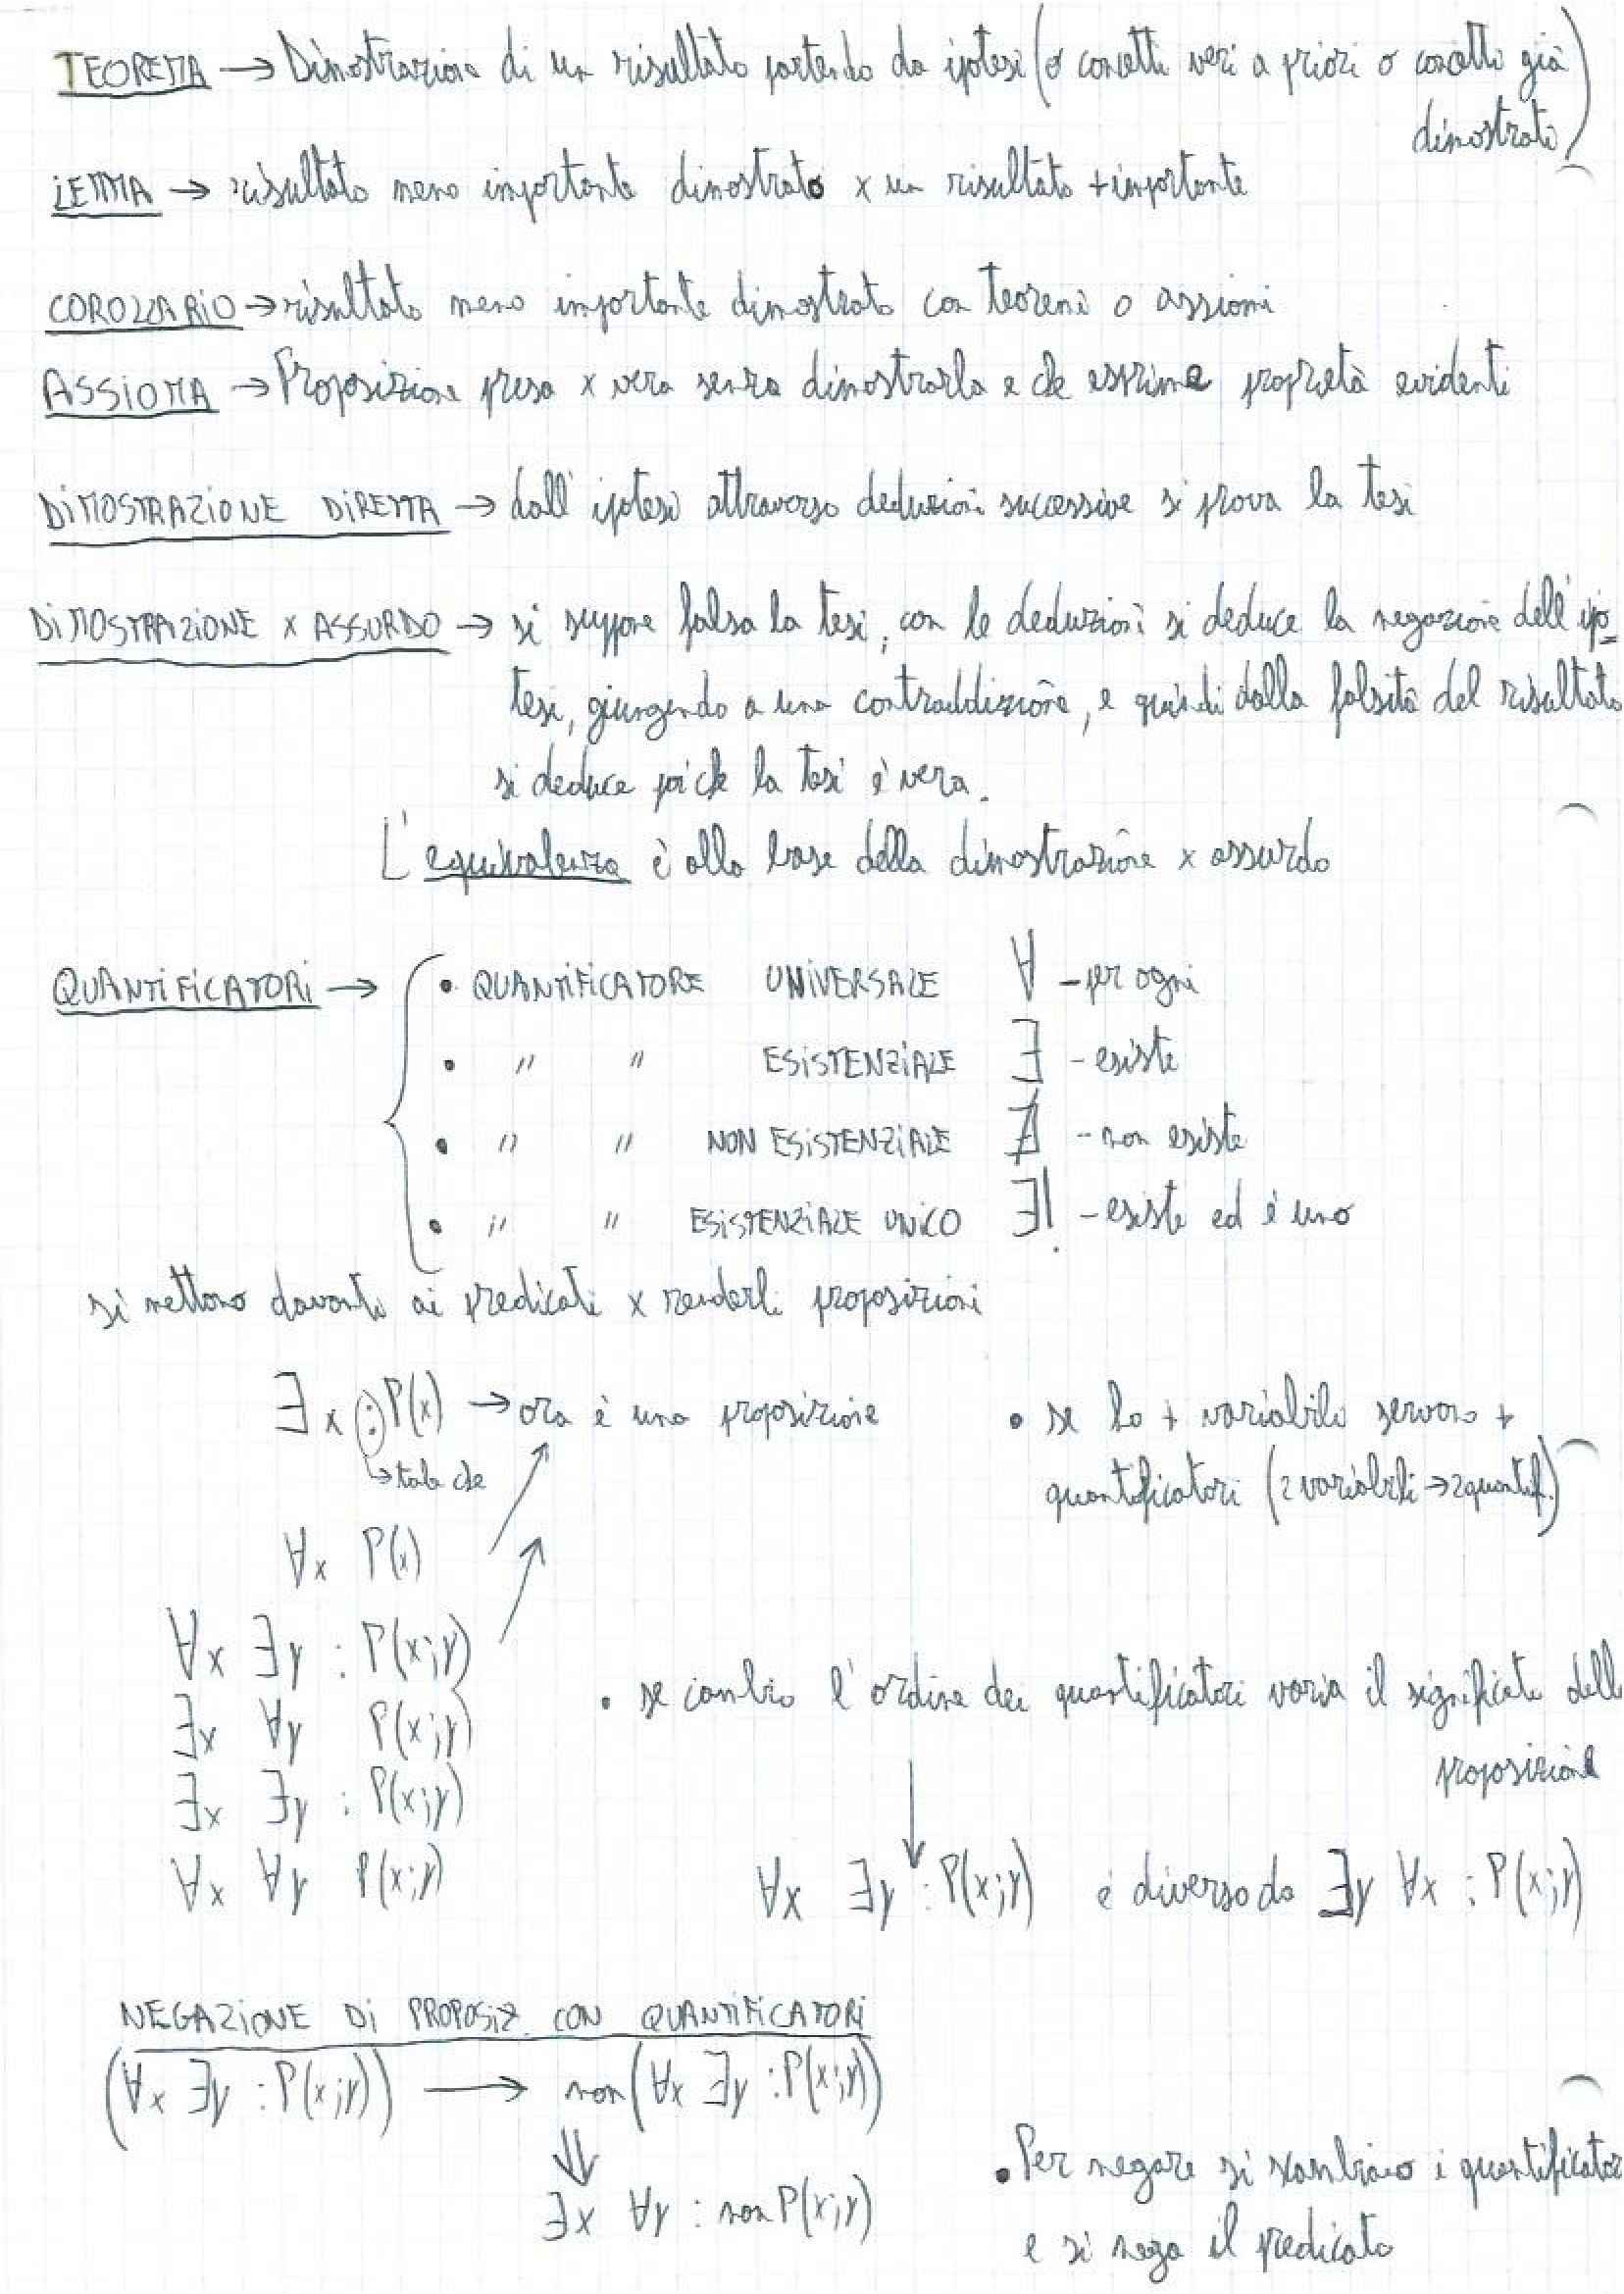 TEOREMA → Dimostrazione di un risultato partendo da ipotesi (o concetti veri a priori o concetti già
dimostrati)
LEMMA → risultato meno importante dimostrato x un risultato + importante
COROLLARIO → risultato meno importante dimostrato con teoremi o assiomi
ASSIOMA → Proposizione presa x vera senza dimostrarla e che esprime proprietà evidenti
DIMOSTRAZIONE DIRETTA → dall'ipotesi attraverso deduzioni successive si prova la tesi
DIMOSTRAZIONE x ASSURDO → si suppone falsa la tesi, con le deduzioni si deduce la negazione dell'ipo=
tesi, giungendo a una contraddizione, e quindi dalla falsità del risultato
si deduce poi che la tesi è vera.
L'equivalenza è alla base della dimostrazione x assurdo
QUANTIFICATORI → { • QUANTIFICATORE UNIVERSALE ∀ - per ogni
• " " ESISTENZIALE ∃ - esiste
• " " NON ESISTENZIALE ∄ - non esiste
• " " ESISTENZIALE UNICO ∃! - esiste ed è uno
si mettono davanti ai predicati x renderli proposizioni
∃x : P(x) → ora è una proposizione
↳ tale che
∀x P(x)
• se ho + variabili servono +
quantificatori (2 variabili → 2 quantif.)
∀x ∃y : P(x;y)
∃x ∀y P(x;y)
∃x ∃y : P(x;y)
∀x ∀y P(x;y)
• se cambio l'ordine dei quantificatori varia il significato dell
proposizione
↓
∀x ∃y : P(x;y) è diverso da ∃y ∀x : P(x;y)
NEGAZIONE DI PROPOSIZ. CON QUANTIFICATORI
(∀x ∃y : P(x;y)) → non (∀x ∃y : P(x;y))
⇓
∃x ∀y : non P(x;y)
• Per negare si scambiano i quantificator
e si nega il predicato